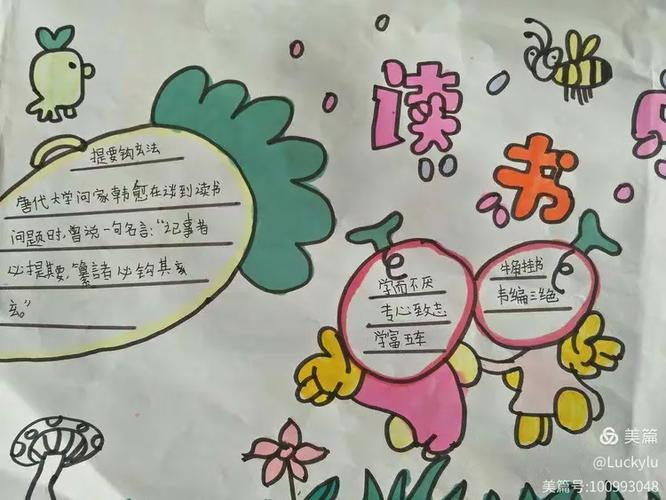 读
书
提要钩玄法
唐代大学问家韩愈在谈到读书
问题时,曾说一句名言:“记事者
必提其要,纂言者必钩其玄
玄。”
学而不厌
专心致志
学富五车
牛角挂书
韦编三绝
美篇
@Luckylu
美篇号:100993048